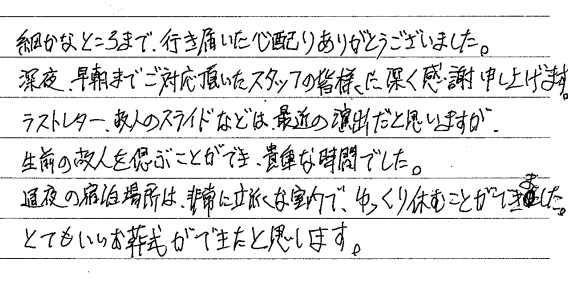 細かなところまで、行き届いた心配りありがとうございました。
深夜、早朝までご対応頂いたスタッフの皆様に深く感謝申し上げます。
ラストレター、故人のスライドなどは、最近の演出だと思いますが、
生前の故人を偲ぶことができ、貴重な時間でした。
通夜の宿泊場所は、非常に立派な室内で、ゆっくり休むことができました。
とてもいいお葬式ができたと思します。